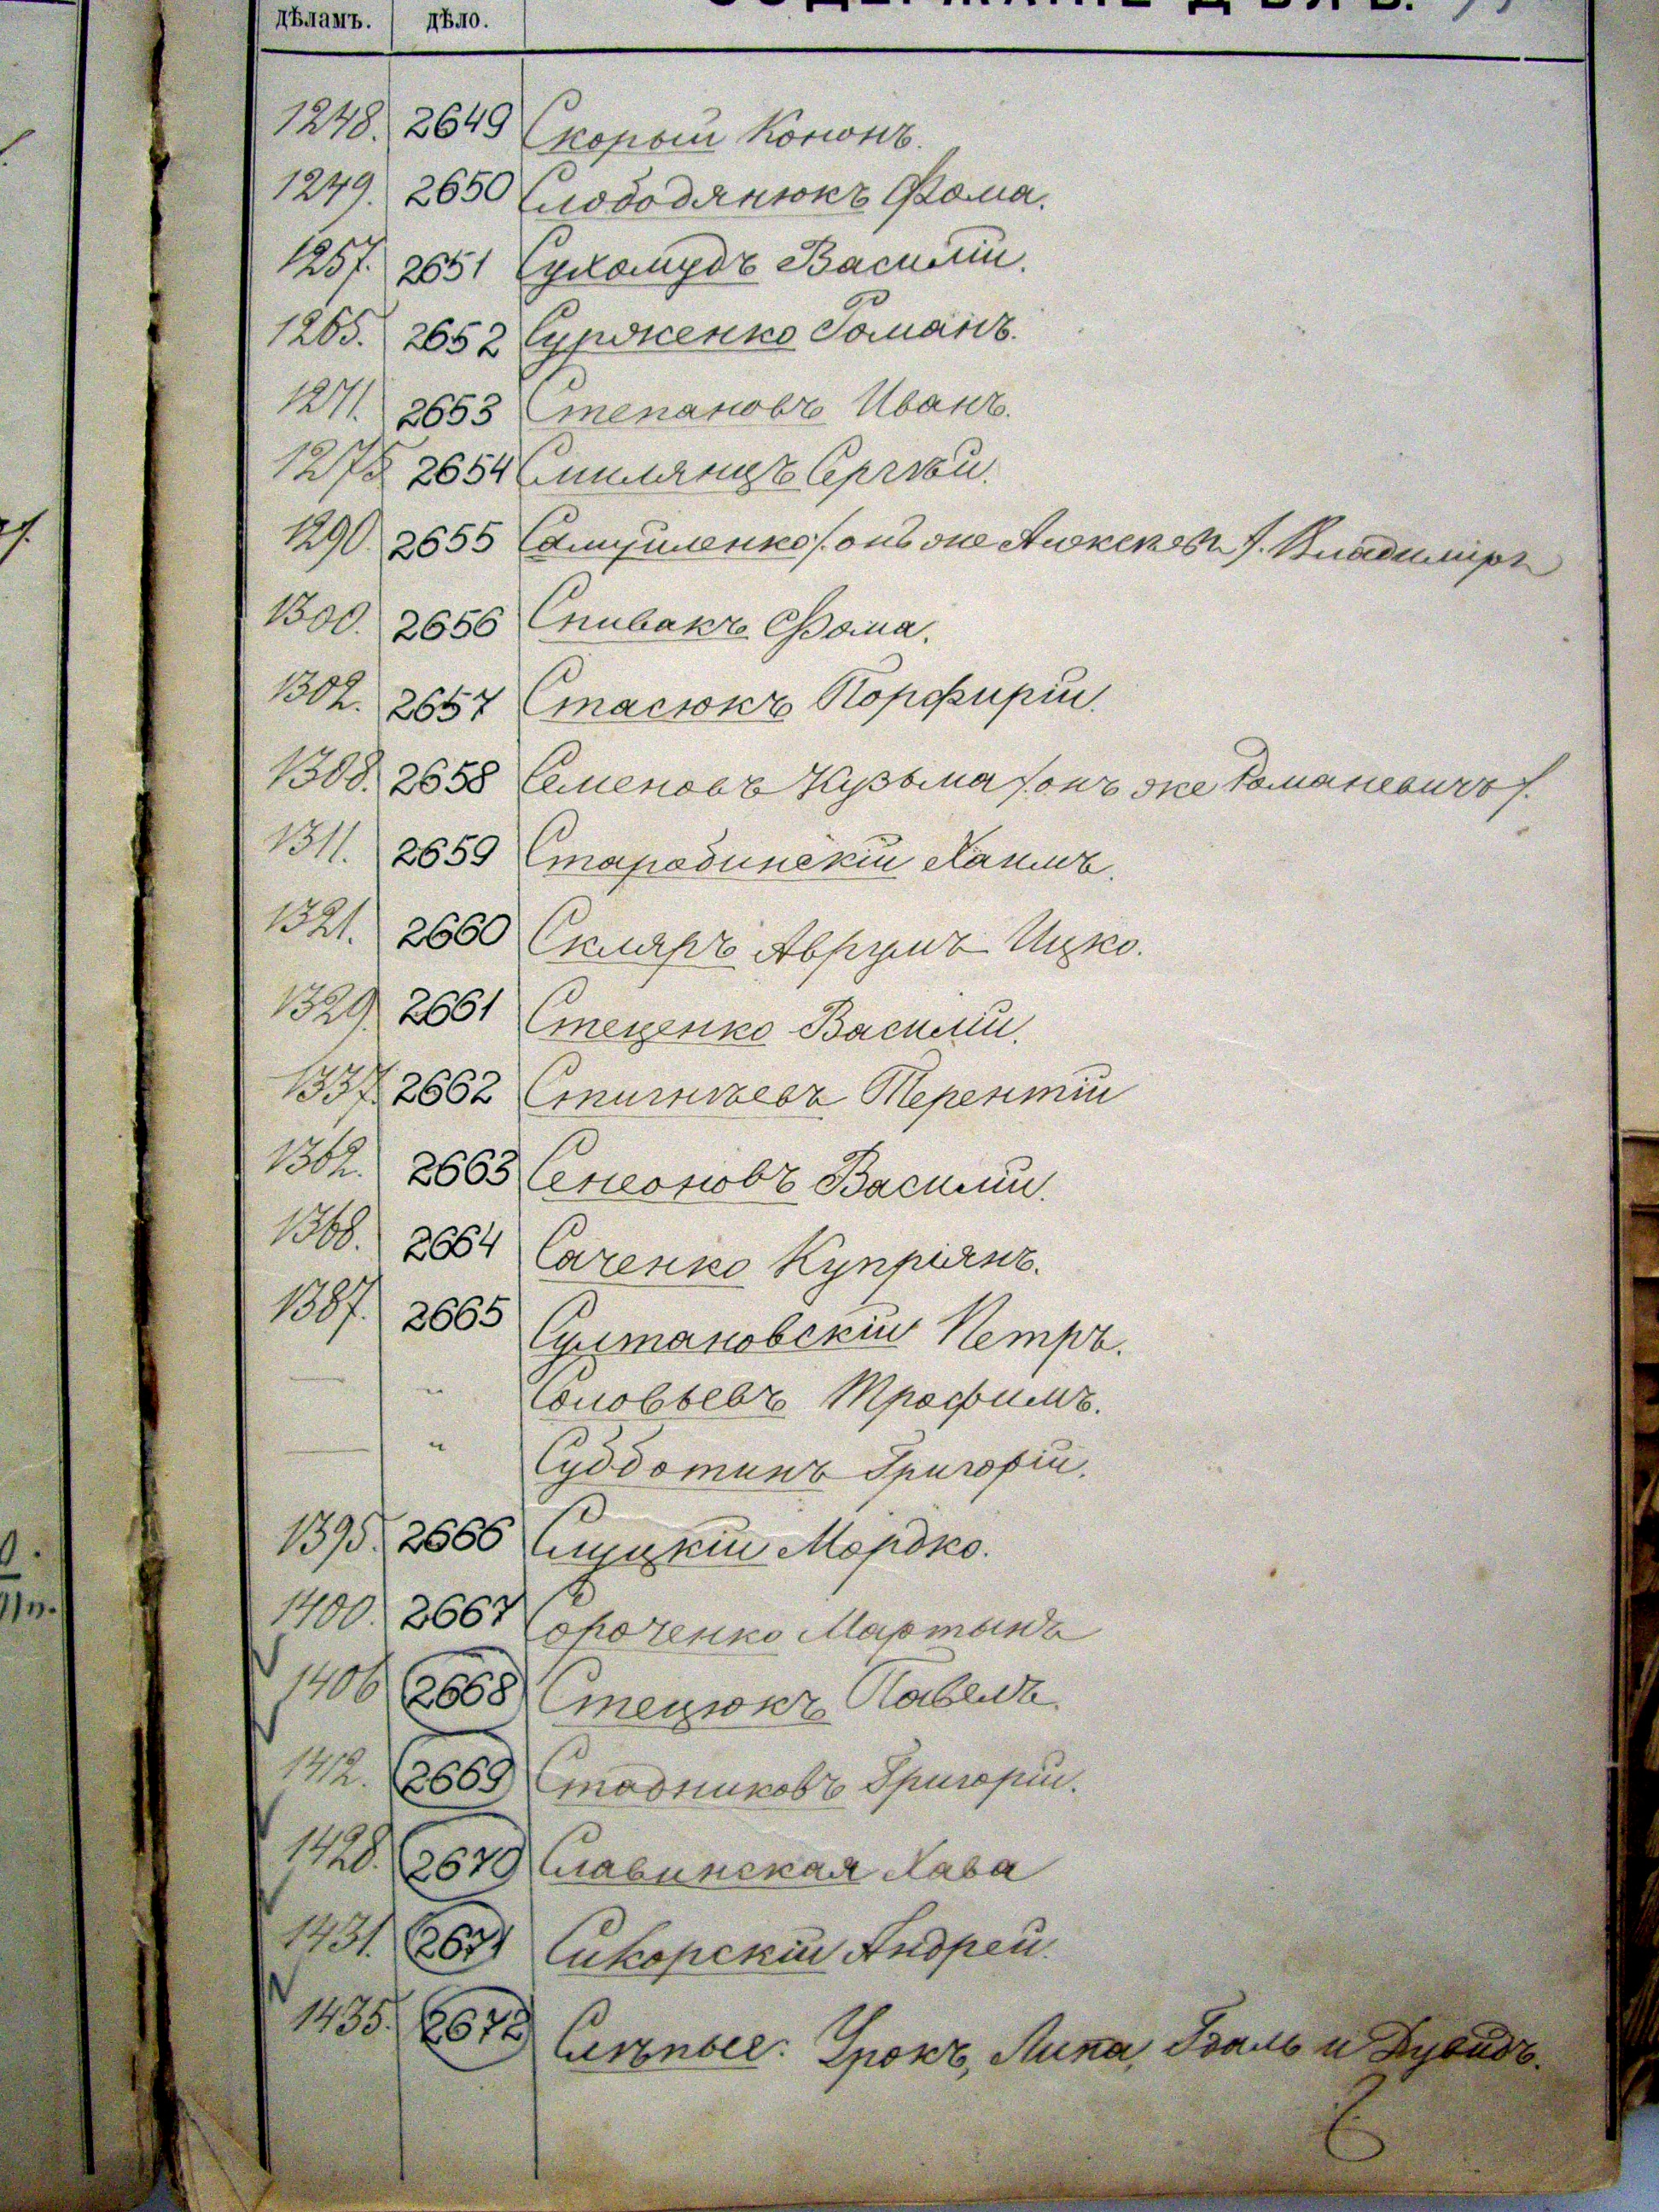 дѣламъ. дѣло. СОДЕРЖАНІЕ ДѢЛЪ.
1248. 2649 Скорый Кононъ.
1249. 2650 Слободянюкъ Фома.
1257. 2651 Сухомудъ Василій.
1265. 2652 Суряженко Романъ.
1271. 2653 Степановъ Иванъ.
1275 2654 Смилянецъ Сергѣй.
1290. 2655 Самуйленко /. онъ же Алексѣевъ /. Владиміръ
1300. 2656 Спивакъ Фома.
1302. 2657 Стасюкъ Порфирій.
1308. 2658 Семеновъ Кузьма /. онъ же Романевичъ /.
1311. 2659 Старобинскій Хаимъ.
1321. 2660 Скляръ Аврумъ Ицко.
1329. 2661 Стеценко Василій.
1337. 2662 Стигнѣевъ Терентій
1362. 2663 Семоновъ Василій.
1368. 2664 Саченко Купріянъ.
1387. 2665 Султановскій Петръ.
— " Соловьевъ Трофимъ.
— " Субботинъ Григорій.
1395. 2666 Слуцкій Мордко.
1400. 2667 Сороченко Мартынъ
1406 2668 Стецюкъ Павелъ.
1412. 2669 Стадниковъ Григорій.
1428. 2670 Славинская Хава
1431. 2671 Сикорскій Андрей.
1435. 2672 Слѣпые: Урокъ, Липа, Бэаль и Дувидъ.